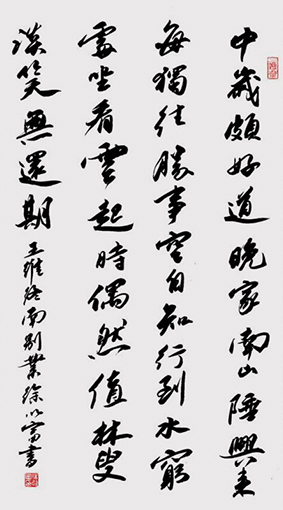 中歲頗好道晚家南山陲興来
每獨往勝事空自知行到水窮
處坐看雲起時偶然值林叟
談笑無還期 王維終南别業徐以富書